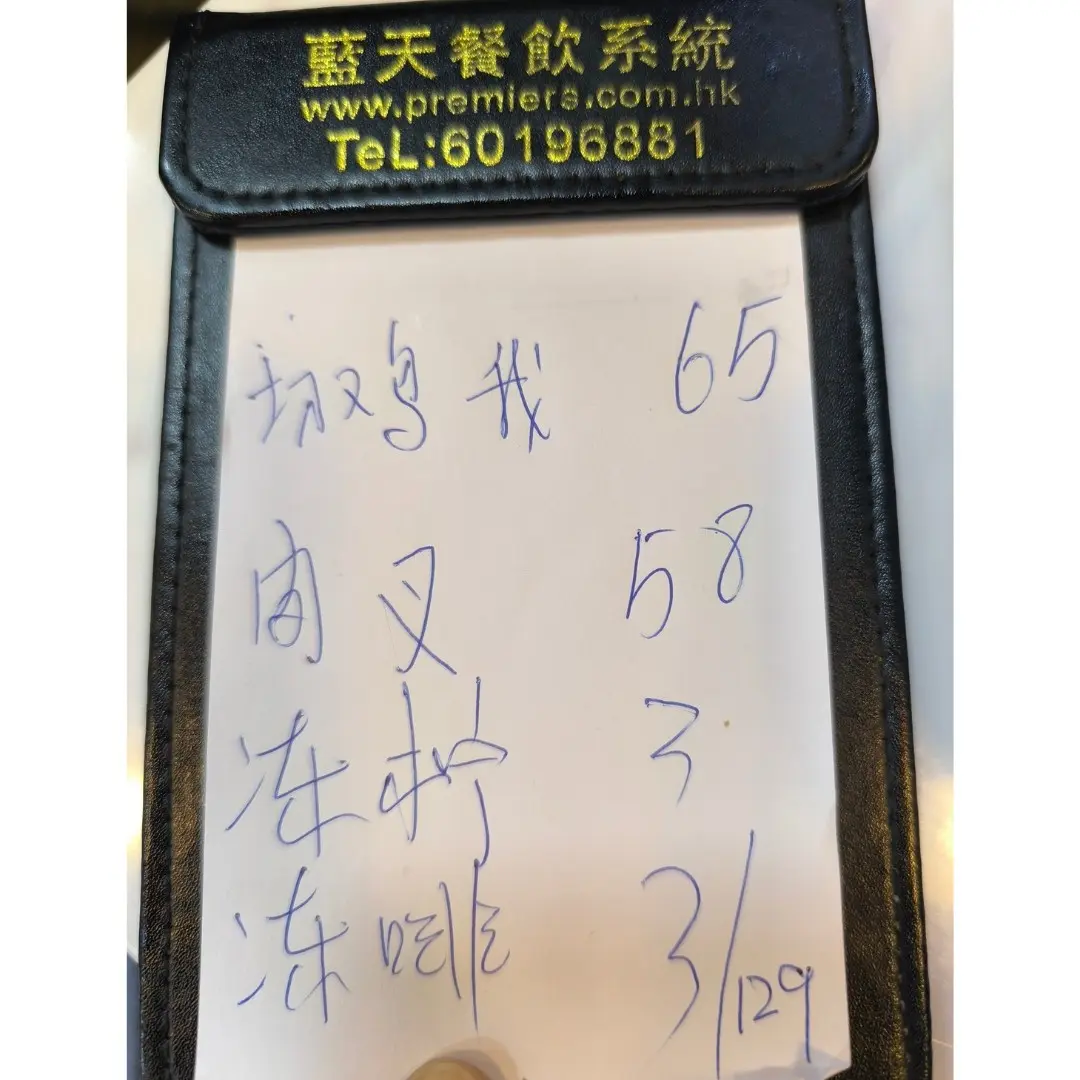 藍天餐飲系統
www.premiers.com.hk
TeL:60196881
鸡 65
肉 叉 58
冻柠 3
冻啡 3/129